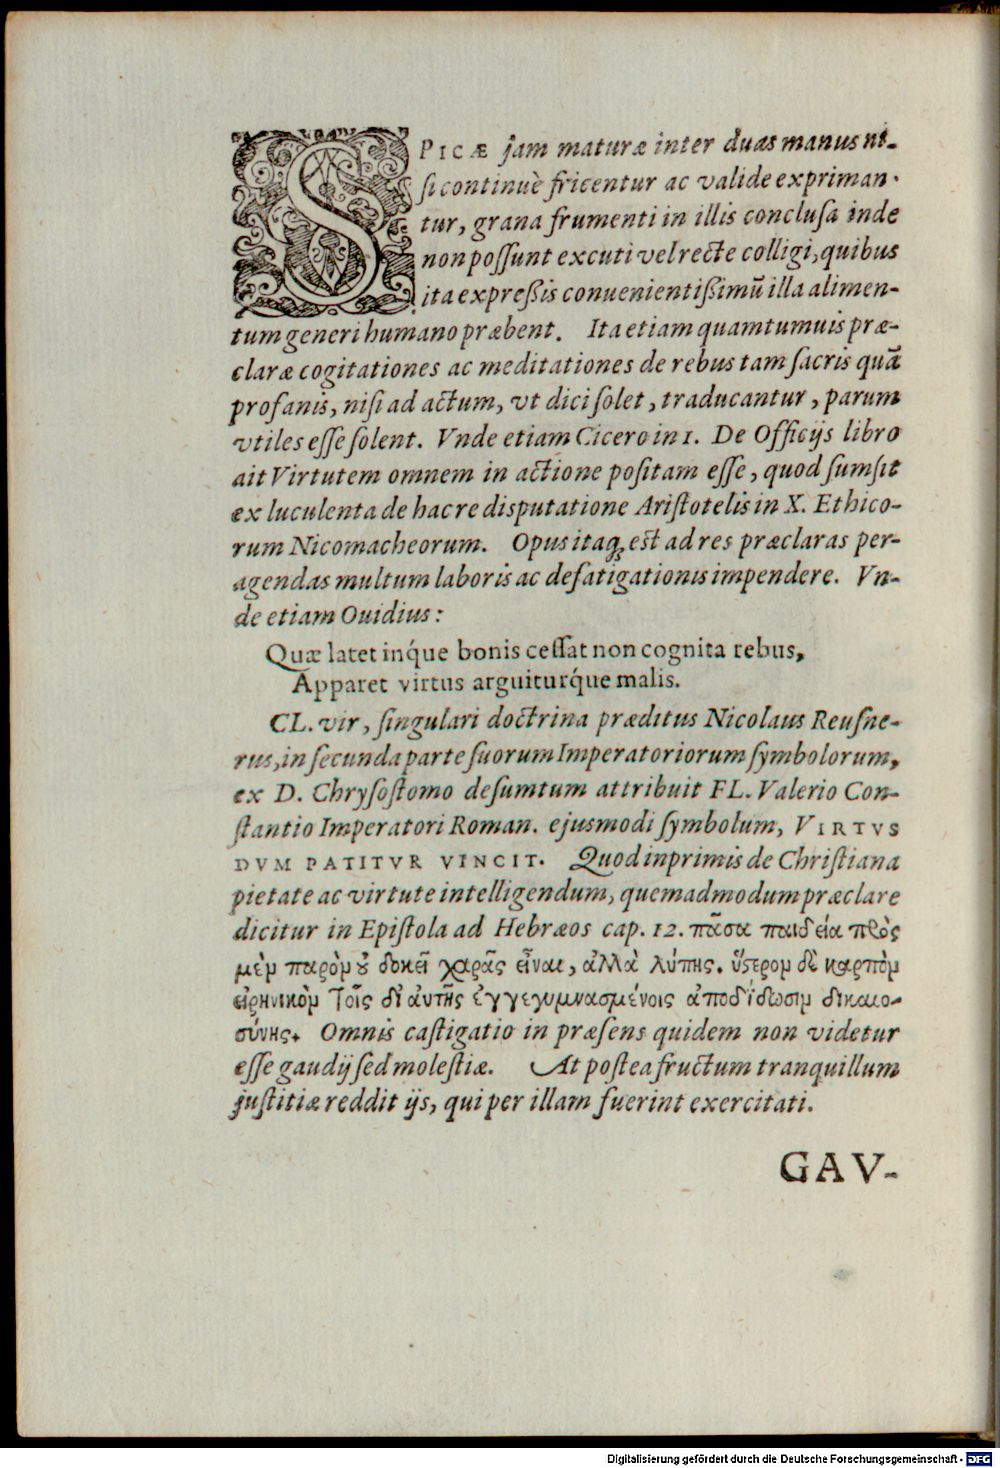 SPICÆ jam maturæ inter duas manus ni-
si continuè fricentur ac valide expriman-
tur, grana frumenti in illis conclusa inde
non possunt excuti vel recte colligi, quibus
ita expreßis conuenientißimũ illa alimen-
tum generi humano præbent. Ita etiam quamtumuis præ-
claræ cogitationes ac meditationes de rebus tam sacris quã
profanis, nisi ad actum, vt dici solet, traducantur, parum
vtiles esse solent. Vnde etiam Cicero in 1. De Officijs libro
ait Virtutem omnem in actione positam esse, quod sumsit
ex luculenta de hac re disputatione Aristotelis in X. Ethico-
rum Nicomacheorum. Opus itaq; est ad res præclaras per-
agendas multum laboris ac defatigationis impendere. Vn-
de etiam Ouidius:
Quæ latet inq́ue bonis cessat non cognita rebus,
Apparet virtus arguiturq́ue malis.
CL. vir, singulari doctrina præditus Nicolaus Reusne-
rus, in secunda parte suorum Imperatoriorum symbolorum,
ex D. Chrysostomo desumtum attribuit FL. Valerio Con-
stantio Imperatori Roman. ejusmodi symbolum, VIRTVS
DVM PATITVR VINCIT. Quod inprimis de Christiana
pietate ac virtute intelligendum, quemadmodum præclare
dicitur in Epistola ad Hebræos cap. 12. πᾶσα παιδεία πρὸς
μὲν παρὸν ȣ δοκεῖ χαρᾶς εἶναι, ἀλλὰ λύπης. ὕστερον δὲ καρπὸν
εἰρηνικὸν τοῖς δι' αὐτῆς ἐγγεγυμνασμένοις ἀποδίδωσιν δικαιο-
σύνης. Omnis castigatio in præsens quidem non videtur
esse gaudij sed molestiæ. At postea fructum tranquillum
justitiæ reddit ijs, qui per illam fuerint exercitati.
GAV-
Digitalisierung gefördert durch die Deutsche Forschungsgemeinschaft - DFG